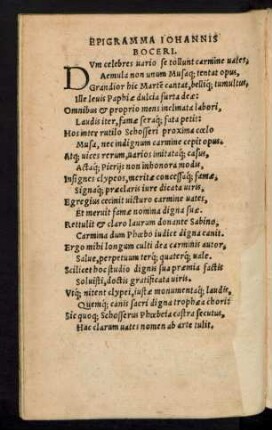 EPIGRAMMA IOHANNIS
BOCERI.
DVm celebres uario se tollunt carmine uates,
Aemula non unum Musaq; tentat opus,
Grandior hic Martē cantat, belliq; tumultus,
Ille leuis Paphiæ dulcia furta deæ:
Omnibus & proprio mens inclinata labori,
Laudis iter, famæ seraq; fata petit:
Hos inter rutilo Schosseri proxima cœlo
Musa, nec indignum carmine cepit opus.
Atq; uices rerum, uarios imitatq; casus,
Actaq; Pierijs non inhonora modis,
Insignes clypeos, meritæ concessaq; famæ,
Signaq; præclaris iure dicata uiris,
Egregius cecinit uicturo carmine uates,
Et meruit famæ nomina digna suæ.
Rettulit & claro lauram donante Sabino,
Carmina dum Phœbo iudice digna canit.
Ergo mihi longum culti dea carminis autor,
Salue, perpetuum terq; quaterq; uale.
Scilicet hoc studio dignis sua præmia factis
Soluisti, doctis gratificata uiris.
Vtq; nitent clypei, iustæ monumentaq; laudis,
Quemq; canis sacri digna trophæa chori:
Sic quoq; Schosserus Phœbeia castra secutus,
Hac clarum uates nomen ab arte tulit.